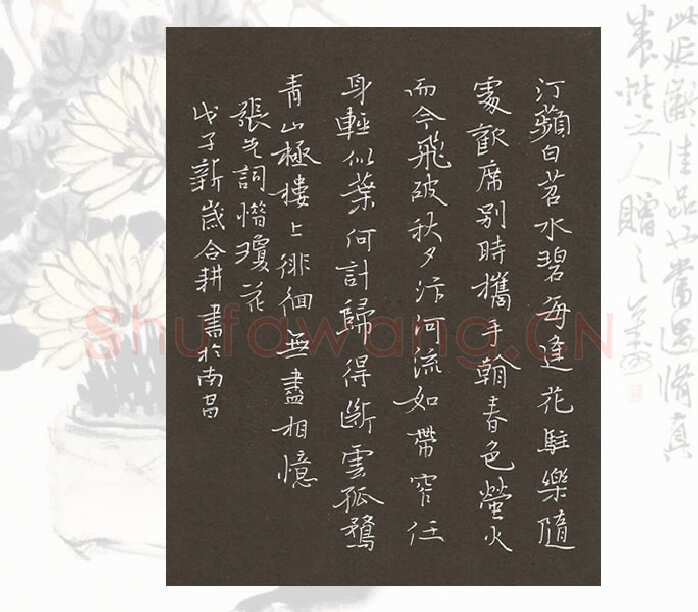 汀蘋白苕水碧每逢花駐樂隨
處歡席別時攜手翰春色螢火
而今飛破秋夕汴河流如帶窄任
身輕似葉何計歸得斷雲孤鶩
青山極樓上徘徊無盡相憶
張先詞惜瓊花
戊子新歲合耕書於南昌
此延齡佳品也當遇脩真
養性之人贈之
Shufawang.CN